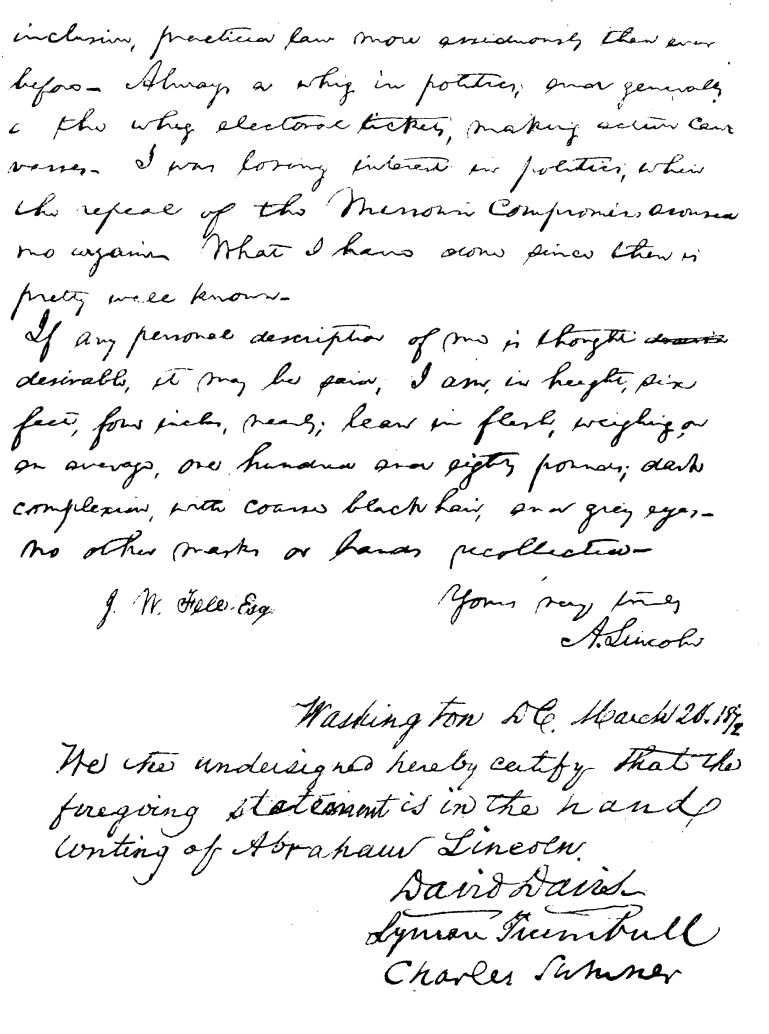 inclusive, practiced law more assiduously than ever
before— Always a whig in politics, and generally
on the whig electoral tickets, making active can
vasses— I was losing interest in politics, when
the repeal of the Missouri Compromise aroused
me again— What I have done since then is
pretty well known—
If any personal description of me is thought
desirable, it may be said, I am, in height, six
feet, four inches, nearly; lean in flesh, weighing, on
an average, one hundred and eighty pounds; dark
complexion, with coarse black hair, and grey eyes—
No other marks or brands recollected—
J. W. Fell, Esq. Yours very truly
A. Lincoln
Washington DC. March 20. 1872
We the undersigned hereby certify that the
foregoing statement is in the hand
writing of Abraham Lincoln.
David Davis
Lyman Trumbull
Charles Sumner